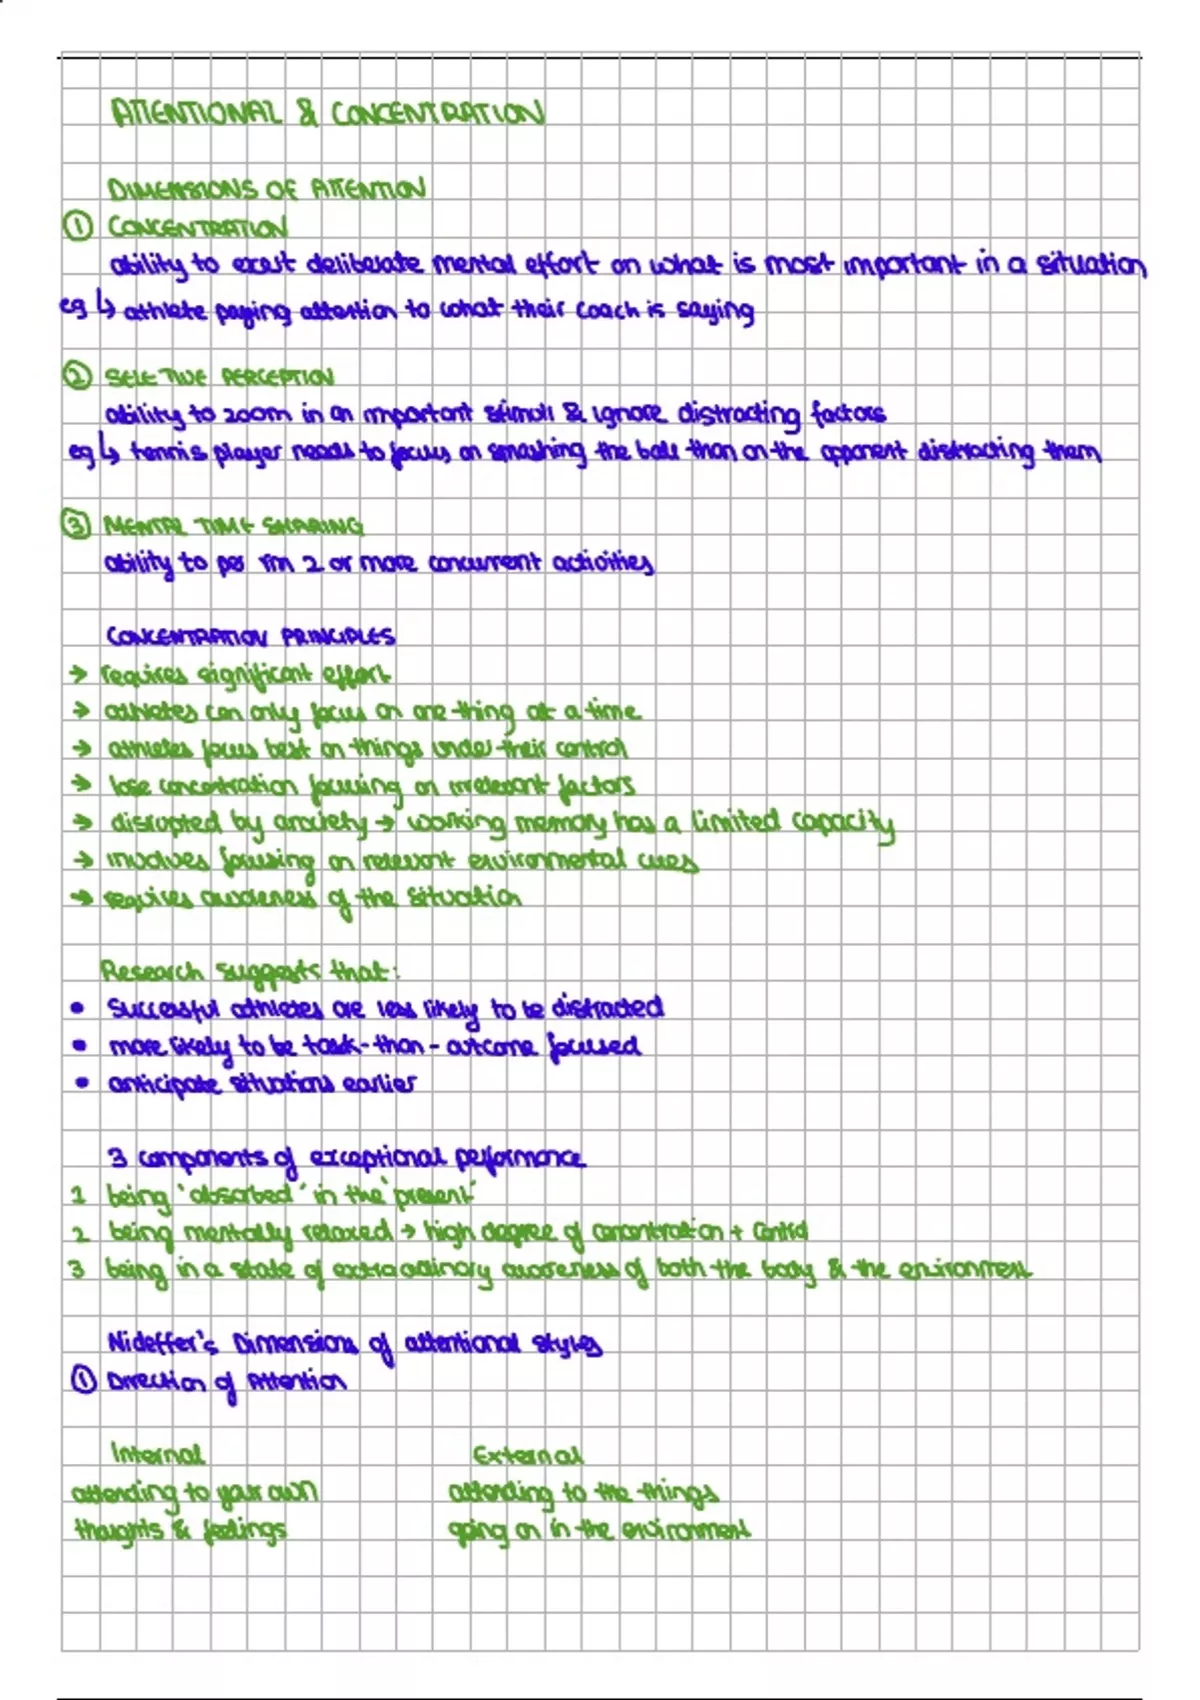 ATTENTIONAL & CONCENTRATION
DIMENSIONS OF ATTENTION
① CONCENTRATION
ability to exert deliberate mental effort on what is most important in a situation
eg ↳ athlete paying attention to what their coach is saying
② SELE TIVE PERCEPTION
ability to zoom in on important stimuli & ignore distracting factors
eg ↳ tennis player needs to focus on smashing the ball than on the opponent distracting them
③ MENTAL TIME SHARING
ability to per rm 2 or more concurrent activities
CONCENTRATION PRINCIPLES
→ requires significant effort
→ athletes can only focus on one thing at a time
→ athletes focus best on things under their control
→ lose concentration focusing on irrelevant factors
→ disrupted by anxiety → working memory has a limited capacity
→ involves focusing on relevant environmental cues
→ requires awareness of the situation
Research suggests that:
• Successful athletes are less likely to be distracted
• more likely to be task-than-outcome focused
• anticipate situations earlier
3 components of exceptional performance
1 being 'absorbed' in the 'present'
2 being mentally relaxed → high degree of concentration + control
3 being in a state of extraordinary awareness of both the body & the environment
Nideffer's Dimensions of attentional styles
① Direction of Attention
Internal External
attending to your own attending to the things
thoughts & feelings going on in the environment